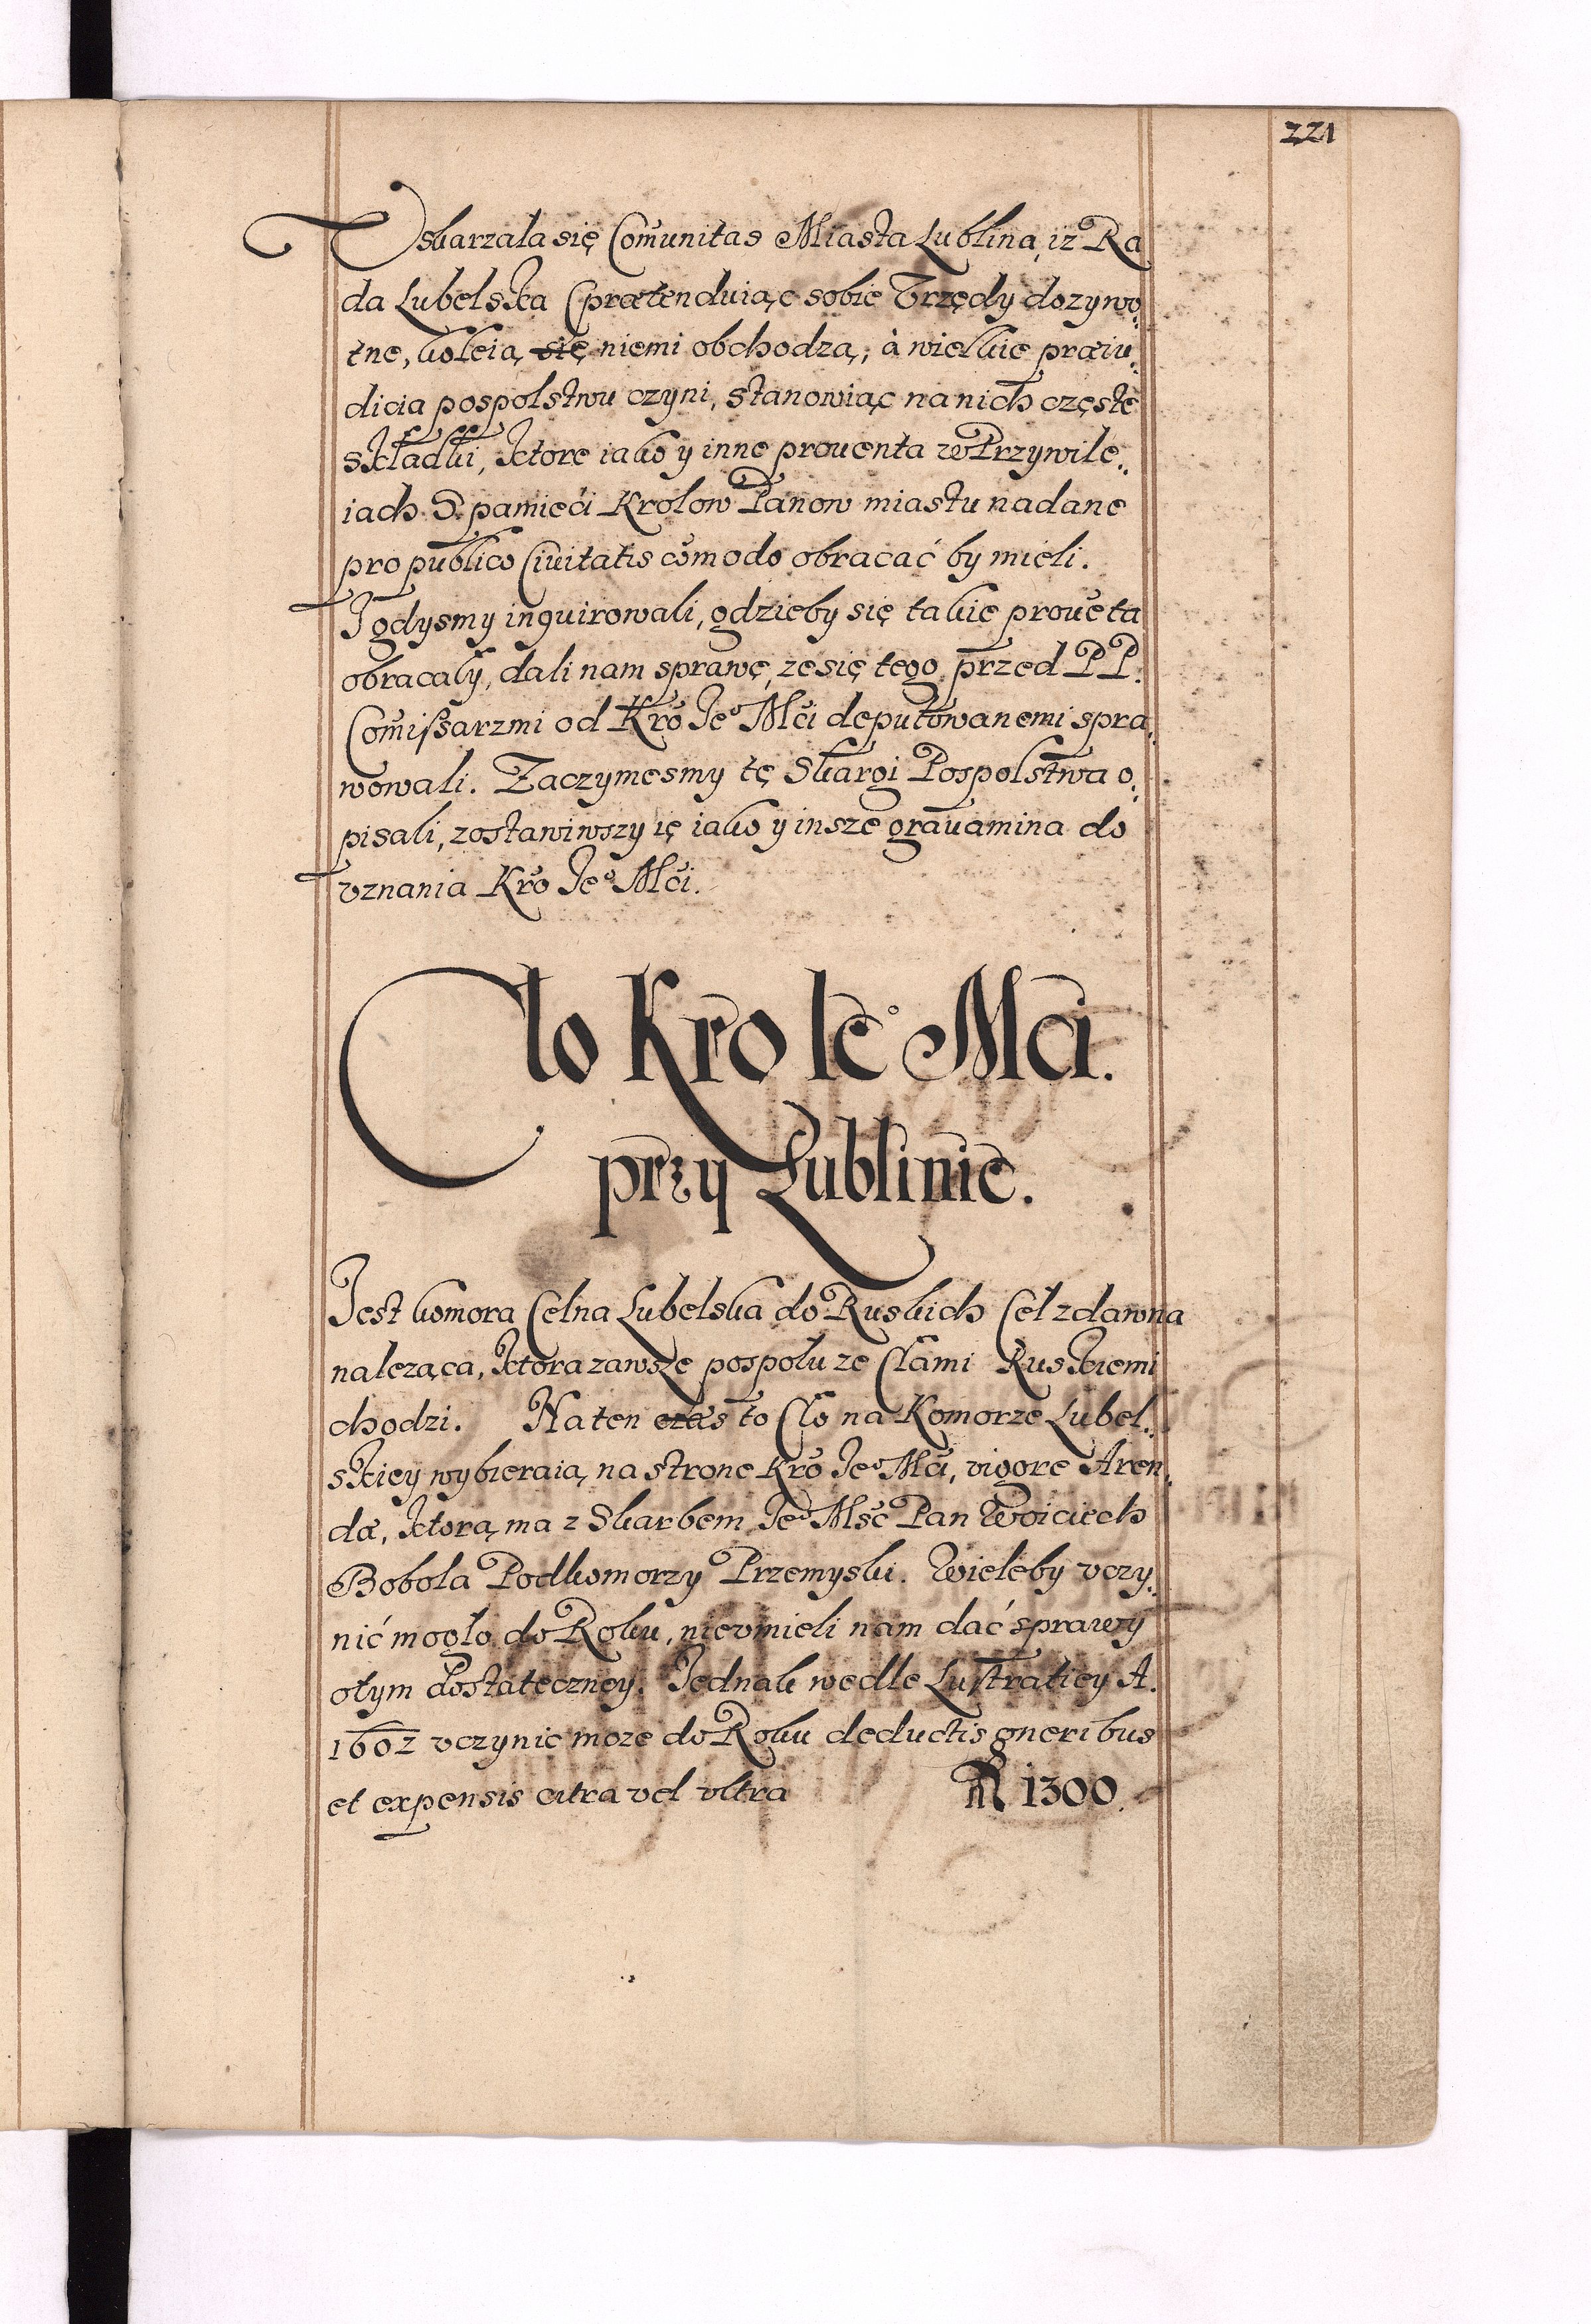 221
Vskarzała się Comunitas Miasta Lublina, iz Ra
da Lubelska prætenduiąc sobie Vrzędy dozywo„
tne, koleią się niemi obchodzą, à wielkie præiu„
dicia pospolstwu czyni, stanowiąc na nich częste
składki, ktore iako y inne prouenta w Przywile„
iach S. pamięći Krolow Panow miastu nadane
pro publico Ciuitatis cōmodo obracać by mieli.
I gdysmy inquirowali, gdzieby się takie prouēta
obracały, dali nam sprawę, ze się tego przed PP.
Comißarzmi od Kro Ieº Mći deputowanemi spra„
wowali. Zaczymesmy tę Skargi Pospolstwa o„
pisali, zostawiwszy ię iako y insze grauamina do
vznania Kro Ieº Mći.
Cło Kro Ieº Mci.
przy Lublinie.
Iest komora Celna Lubelska do Ruskich Ceł zdawna
nalezące, ktora zawsze pospołu ze Cłami Ruskiemi
chodzi. Na ten czas to Cło na Komorze Lubel„
skiey wybieraią na strone Kro Ieº Mći, vigore Aren„
dæ, ktorą ma z Skarbem Ieº Mśc Pan Woiciech
Bobola Podkomorzy Przemyski. Wieleby vczy„
nić mogło do Roku, nievmieli nam dać sprawy
otym dostateczney. Iednak wedle Lustratiey A.
1602 vczynic moze do Roku deductis oneribus
et expensis citra vel vltra fl 1300